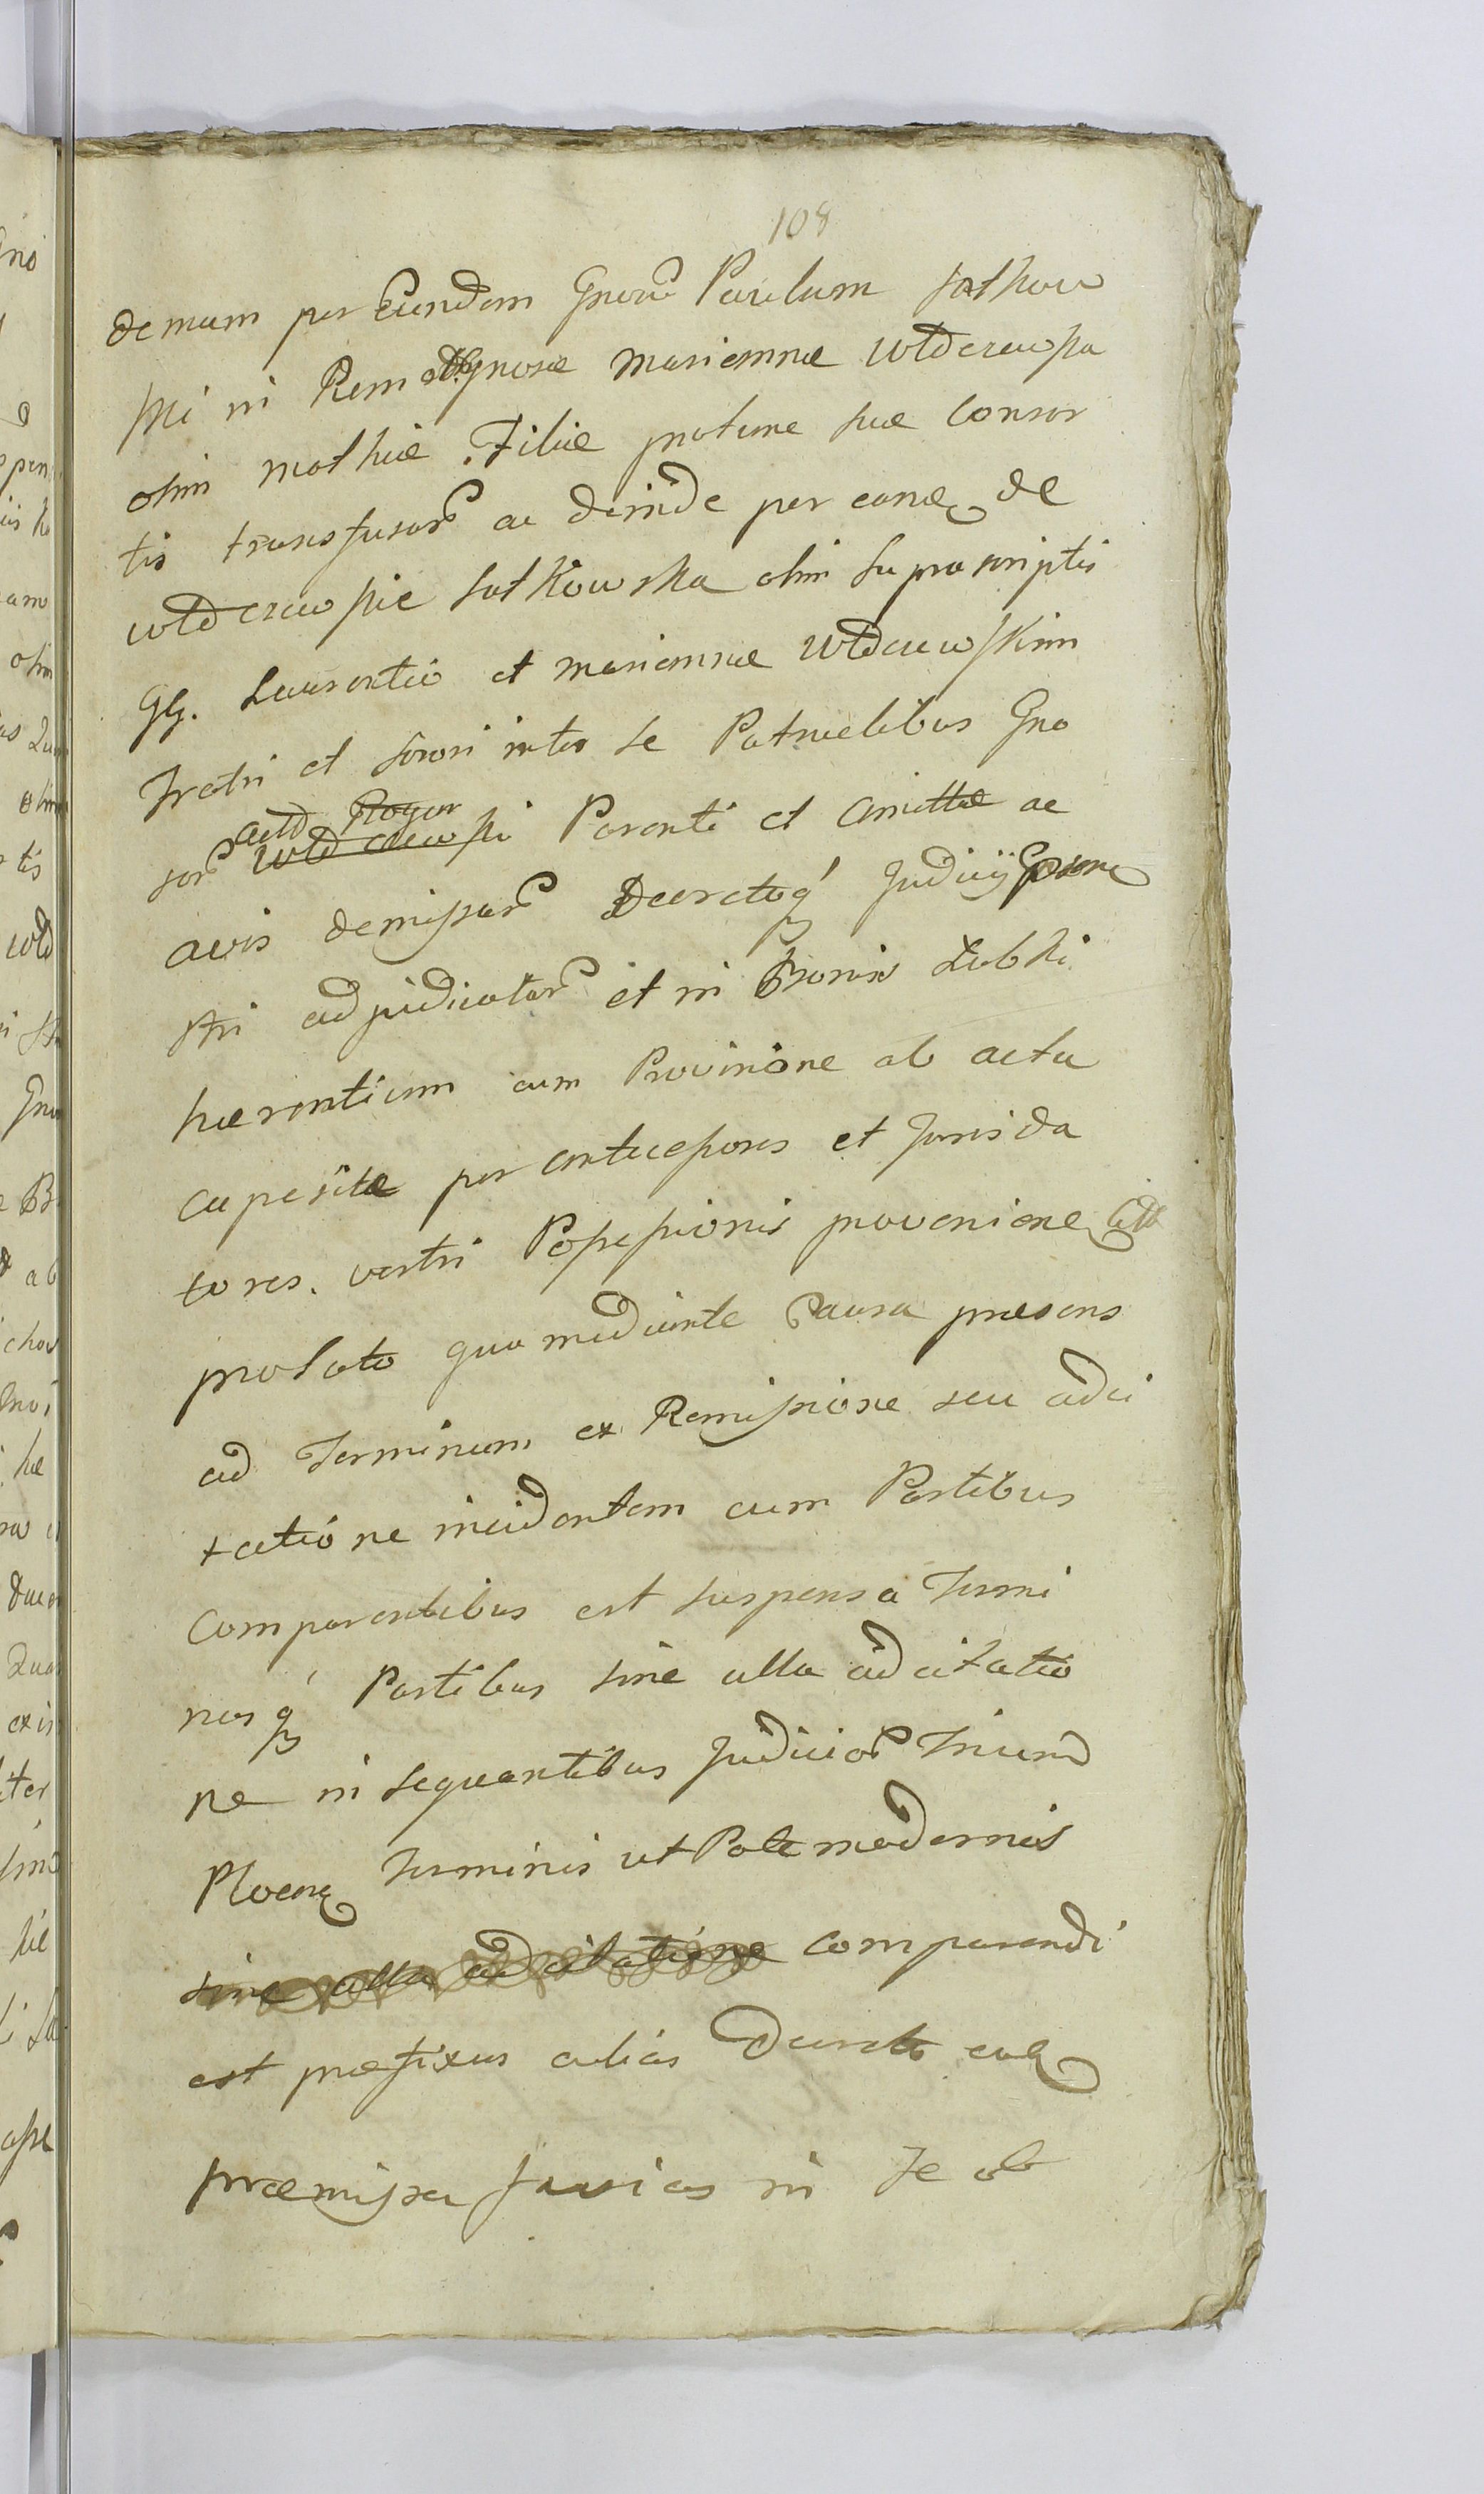 108
demum per Eundem Gnorũ Paulum sutkow
ski in Rem Gnosae Mariannae Włdczewska
olim Mathiae Filiae protunc suae Consor
tis transfusar̃ ac deinde per eand de
Włdczewskie Sutkowska olim suprascriptis
GG. Laurentio et Mariannae Włdczewskim
Fratri et sorori inter se Patruelibus Gno
sor̃ Actor Rogor
Włdczewski Parenti et Amittae ac
avis demissar̃ Decretoq́ Judicij Gosne
stri adjudicatar̃ et in Bonis Lubki
haerentium cum Provisione ab actu
cupesitae per antecessores et Jurisda
tores vestri Possessionis proveniene
prolato quo mediante Causa praesens
ad Terminum ex Remissione seu adci
tatióne incidentem cum Partibus
Comparentibus est suspensa Termi
nusq́ Partibus sine ulla adcitatio
ne in sequentibus Judicior̃ Trium
Plocen Terminis ut Pote modernis
sine ulla adcitatióne comparendi
est praefixus alias Decreto eoq
praemissa fusius in se ob